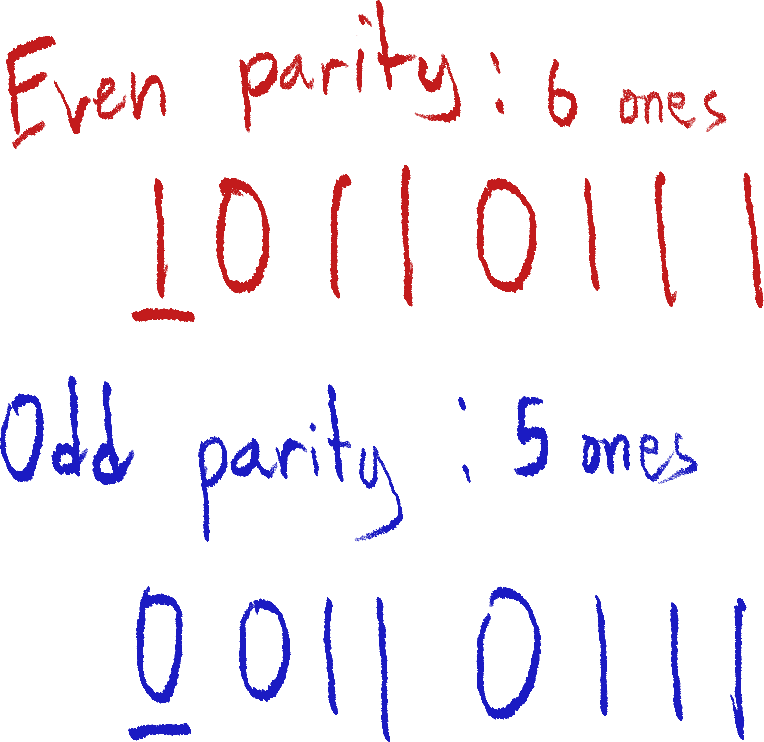 Even parity: 6 ones
1 0 1 1 0 1 1 1
Odd parity: 5 ones
0 0 1 1 0 1 1 1